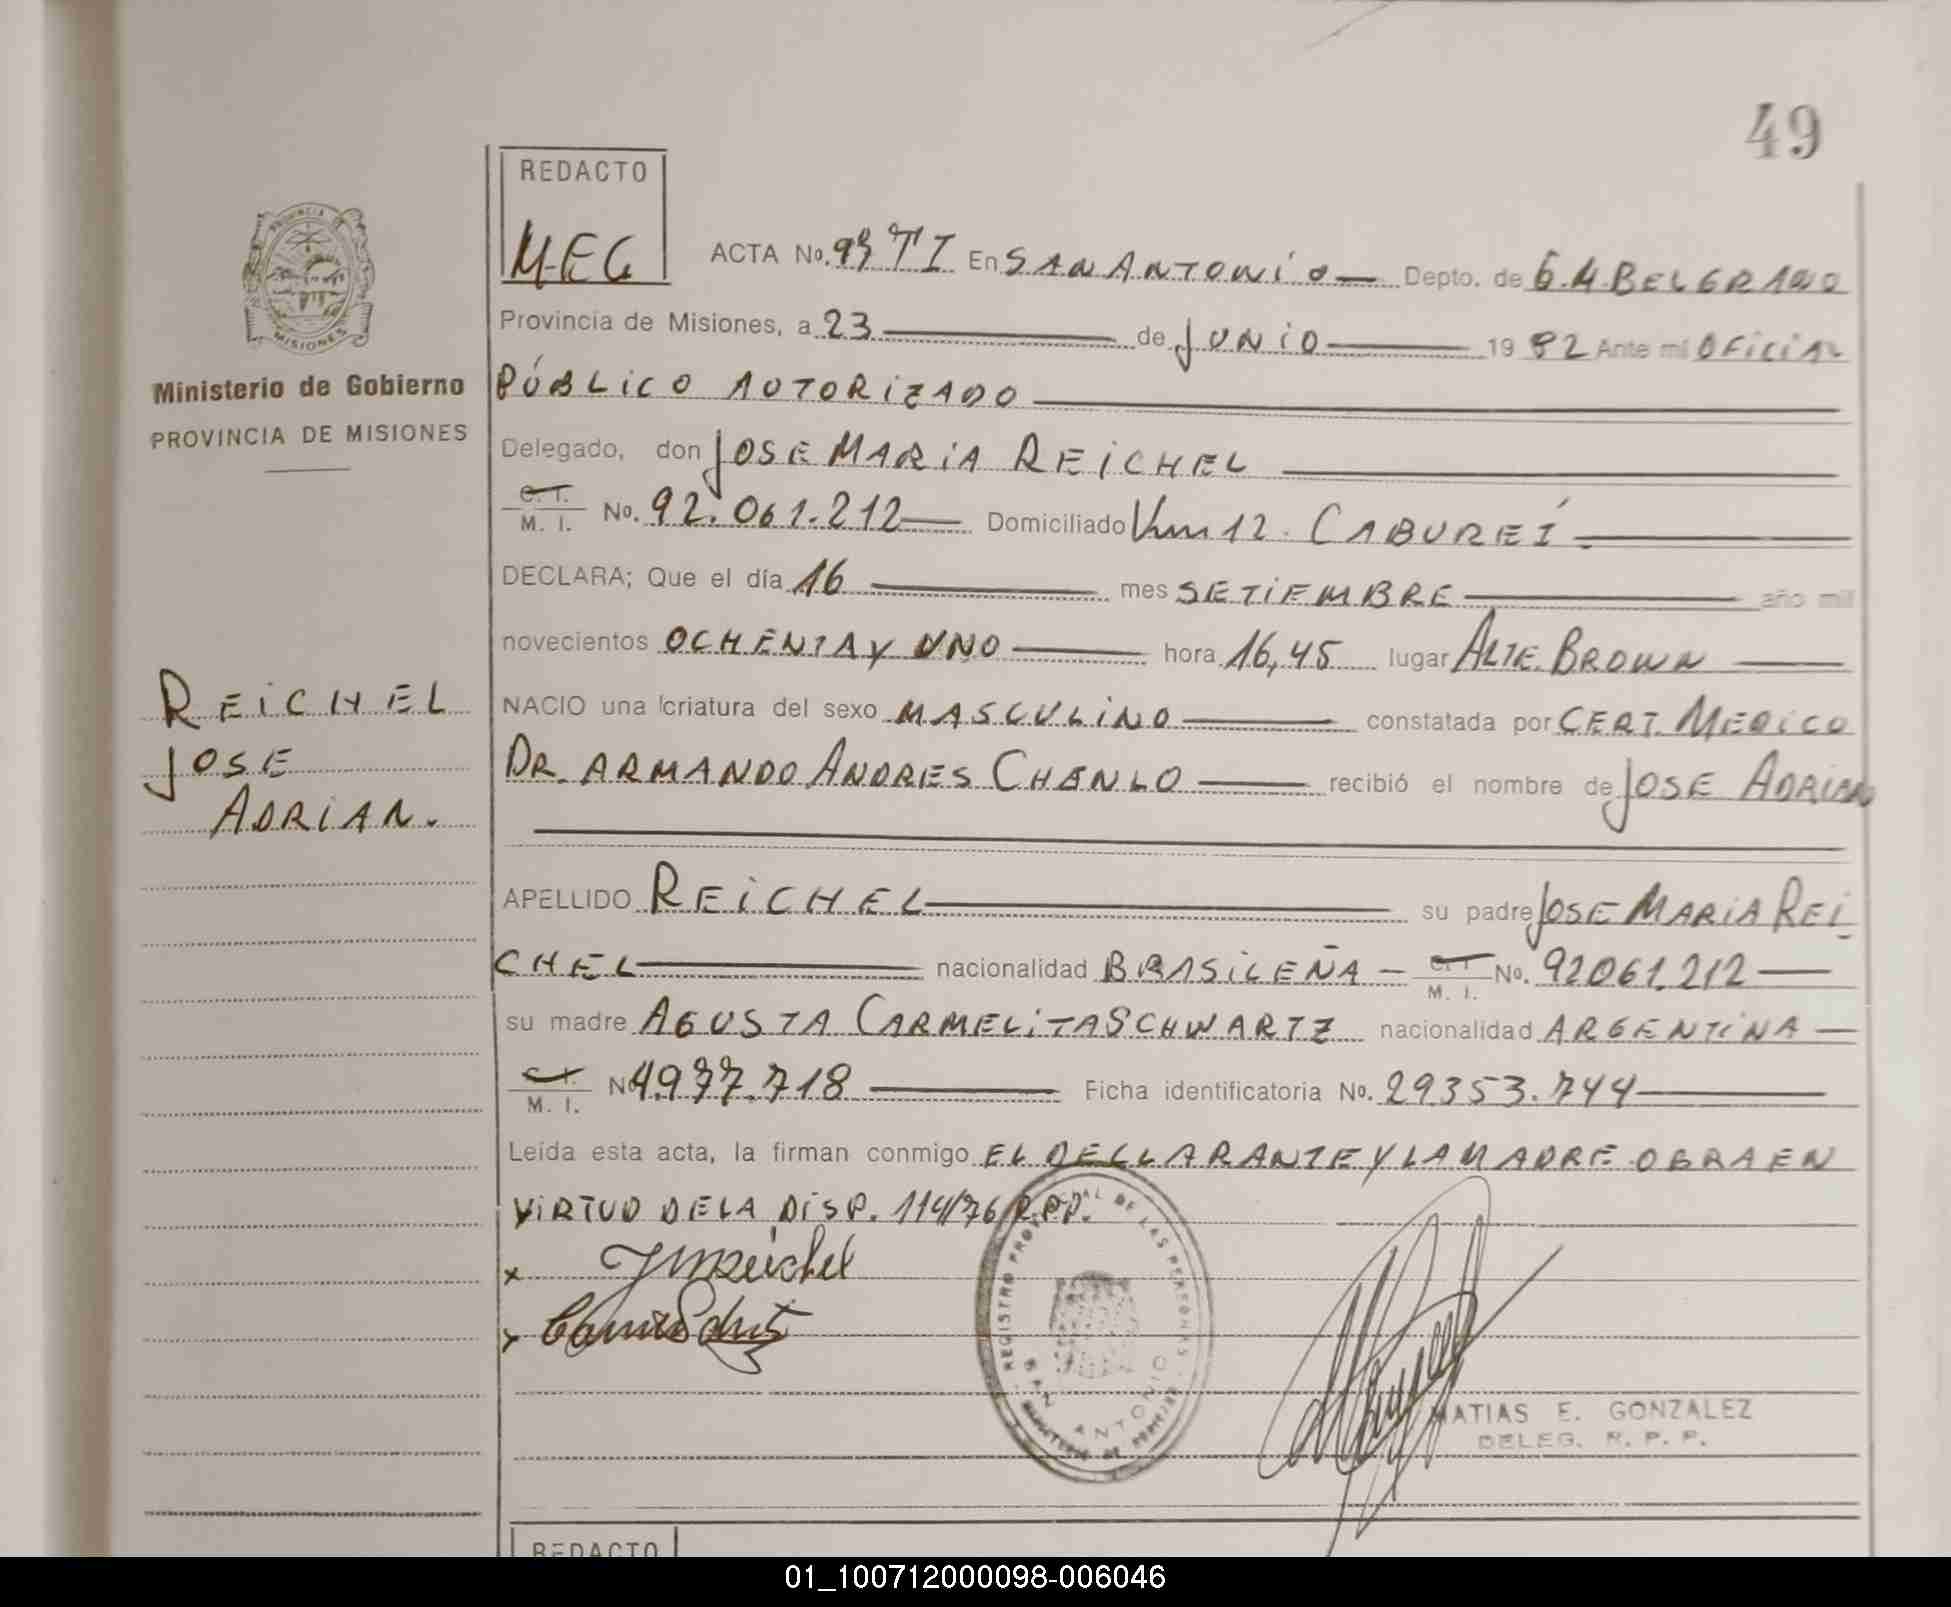 49
REDACTO
MEG
ACTA No. 93 TI En SAN ANTONIO Depto. de G.M. BELGRANO
Provincia de Misiones, a 23 de JUNIO 19 82 Ante mi OFICIAL
PÚBLICO AUTORIZADO
Ministerio de Gobierno
PROVINCIA DE MISIONES
Delegado, don JOSE MARIA REICHEL
C. I.
M. I. No. 92.061.212 Domiciliado Km 12. CABUREÍ
DECLARA; Que el día 16 mes SETIEMBRE año mil
novecientos OCHENTA Y UNO hora 16,45 lugar ALTE. BROWN
REICHEL
JOSE
ADRIAN.
NACIO una criatura del sexo MASCULINO constatada por CERT. MEDICO
DR. ARMANDO ANDRES CHANLO recibió el nombre de JOSE ADRIAN
APELLIDO REICHEL su padre JOSE MARIA REI
CHEL nacionalidad BRASILEÑA C. I. M. I. No. 92061.212
su madre AGUSTA CARMELITA SCHWARTZ nacionalidad ARGENTINA
C. I.
M. I. No 4.977.718 Ficha identificatoria No. 29353.744
Leída esta acta, la firman conmigo EL DECLARANTE Y LA MADRE OBRA EN
VIRTUD DE LA DISP. 114/76 R.P.P.
x JMReichel
x
REGISTRO PROVINCIAL DE LAS PERSONAS
SAN ANTONIO
MATIAS E. GONZALEZ
DELEG. R. P. P.
REDACTO
01_100712000098-006046